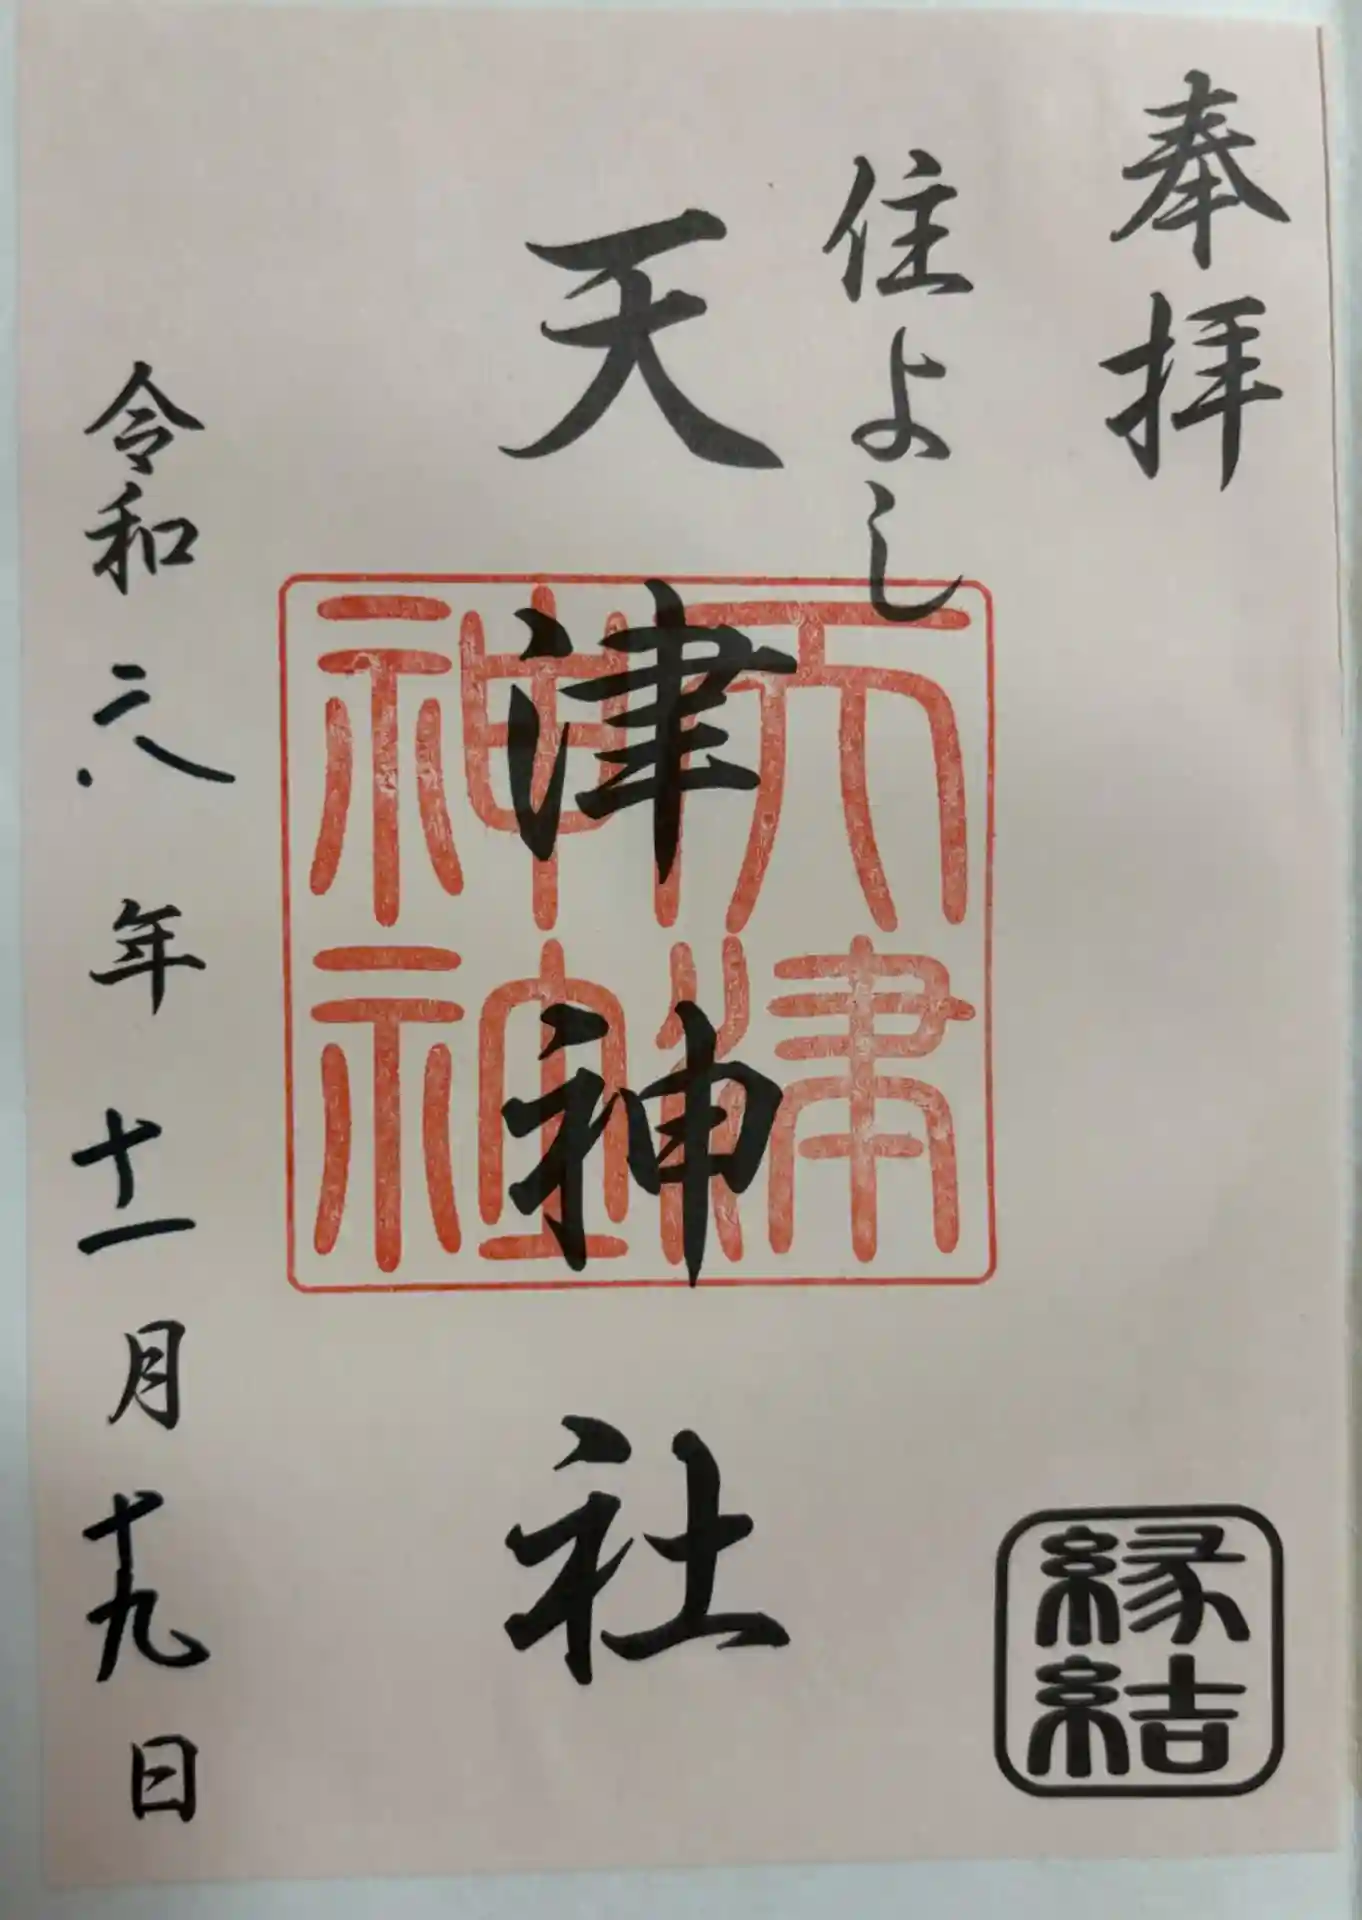 奉拝
縁結
住よし
天津神社
天津
神社
令和六年十一月十九日